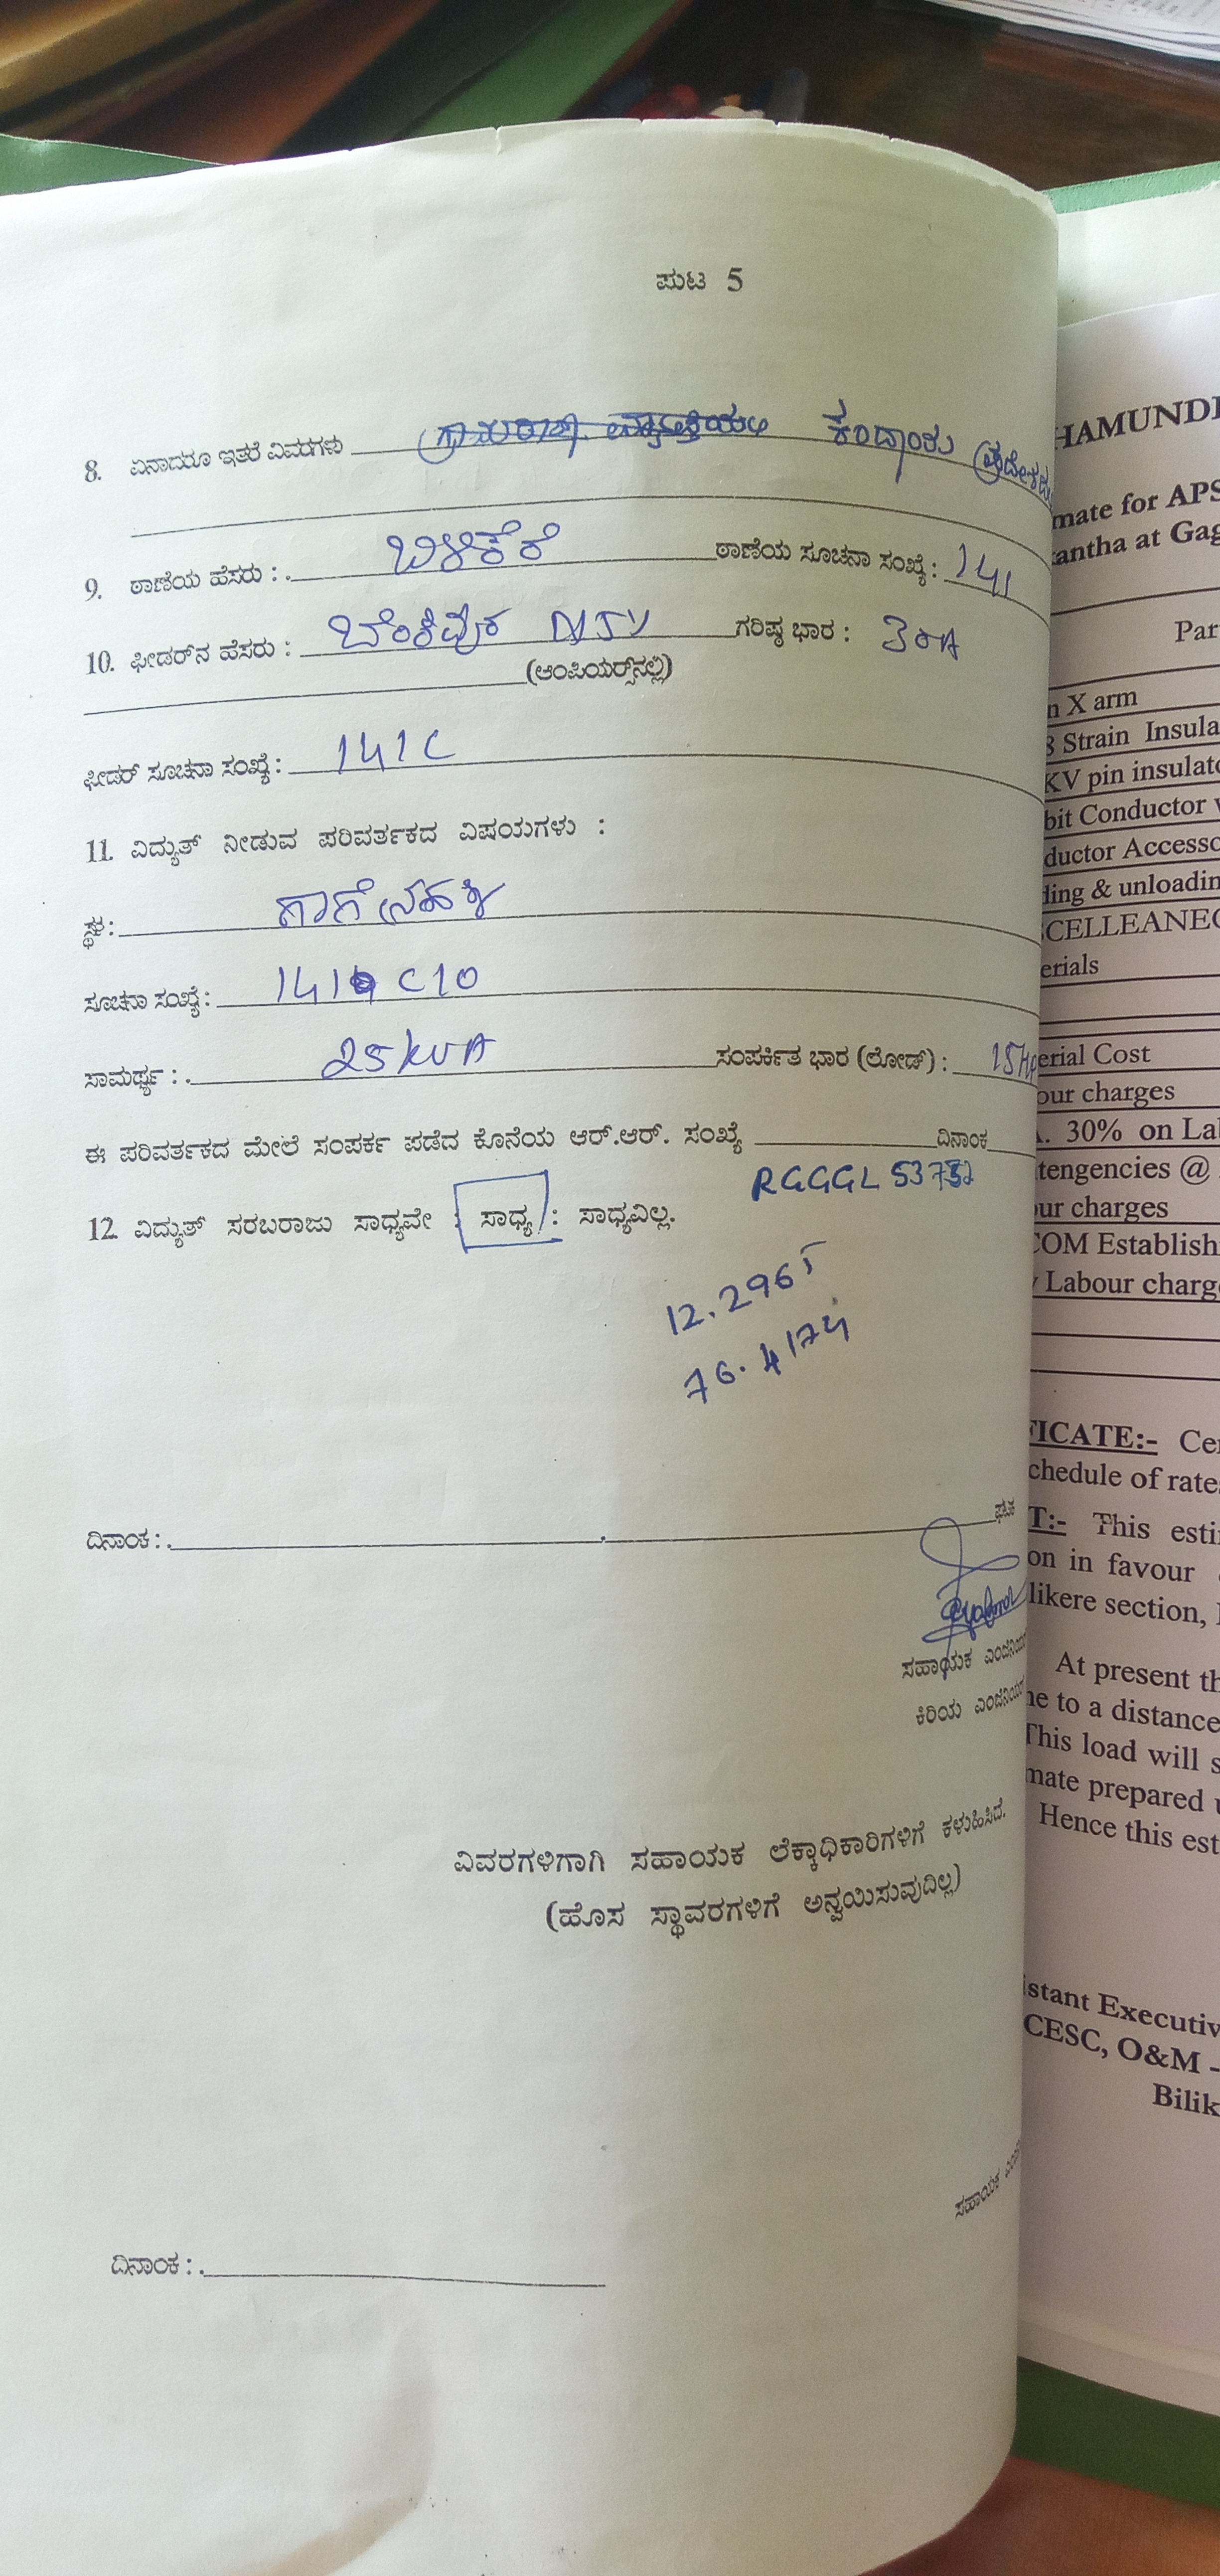 ಪುಟ 5
8. ಏನಾದರೂ ಇತರೆ ವಿವರಗಳು ಕಂದಾಯ
9. ಠಾಣೆಯ ಹೆಸರು : ಬಿಳಿಕೆರೆ ಠಾಣೆಯ ಸೂಚನಾ ಸಂಖ್ಯೆ : 141
10. ಫೀಡರ್‌ನ ಹೆಸರು : NJY ಗರಿಷ್ಠ ಭಾರ : 30A
(ಆಂಪಿಯರ್ಸ್‌ನಲ್ಲಿ)
ಫೀಡರ್ ಸೂಚನಾ ಸಂಖ್ಯೆ : 141C
11. ವಿದ್ಯುತ್ ನೀಡುವ ಪರಿವರ್ತಕದ ವಿಷಯಗಳು :
ಸ್ಥಳ : ಗಾಗೇನಹಳ್ಳಿ
ಸೂಚನಾ ಸಂಖ್ಯೆ : 141 C10
ಸಾಮರ್ಥ್ಯ : 25 KVA ಸಂಪರ್ಕಿತ ಭಾರ (ಲೋಡ್) : 15HP
ಈ ಪರಿವರ್ತಕದ ಮೇಲೆ ಸಂಪರ್ಕ ಪಡೆದ ಕೊನೆಯ ಆರ್.ಆರ್. ಸಂಖ್ಯೆ ದಿನಾಂಕ
RGGGL
12. ವಿದ್ಯುತ್ ಸರಬರಾಜು ಸಾಧ್ಯವೇ : ಸಾಧ್ಯ : ಸಾಧ್ಯವಿಲ್ಲ.
12.2965
76.4174
ದಿನಾಂಕ :
ಸಹಾಯಕ
ಕಿರಿಯ
ವಿವರಗಳಿಗಾಗಿ ಸಹಾಯಕ ಲೆಕ್ಕಾಧಿಕಾರಿಗಳಿಗೆ ಕಳುಹಿಸಿದೆ.
(ಹೊಸ ಸ್ಥಾವರಗಳಿಗೆ ಅನ್ವಯಿಸುವುದಿಲ್ಲ)
ಸಹಾಯಕ
ದಿನಾಂಕ :
HAMUNDI
mate for APS
antha at Gag
Par
n X arm
8 Strain Insula
KV pin insulato
bit Conductor
ductor Accesso
ding & unloadin
CELLEANEO
erials
erial Cost
our charges
. 30% on Lab
tengencies @
ur charges
COM Establish
Labour charg
FICATE:- Cer
chedule of rate
T:- This esti
on in favour
likere section,
At present th
ne to a distance
This load will s
mate prepared
Hence this est
istant Executiv
CESC, O&M -
Bilik